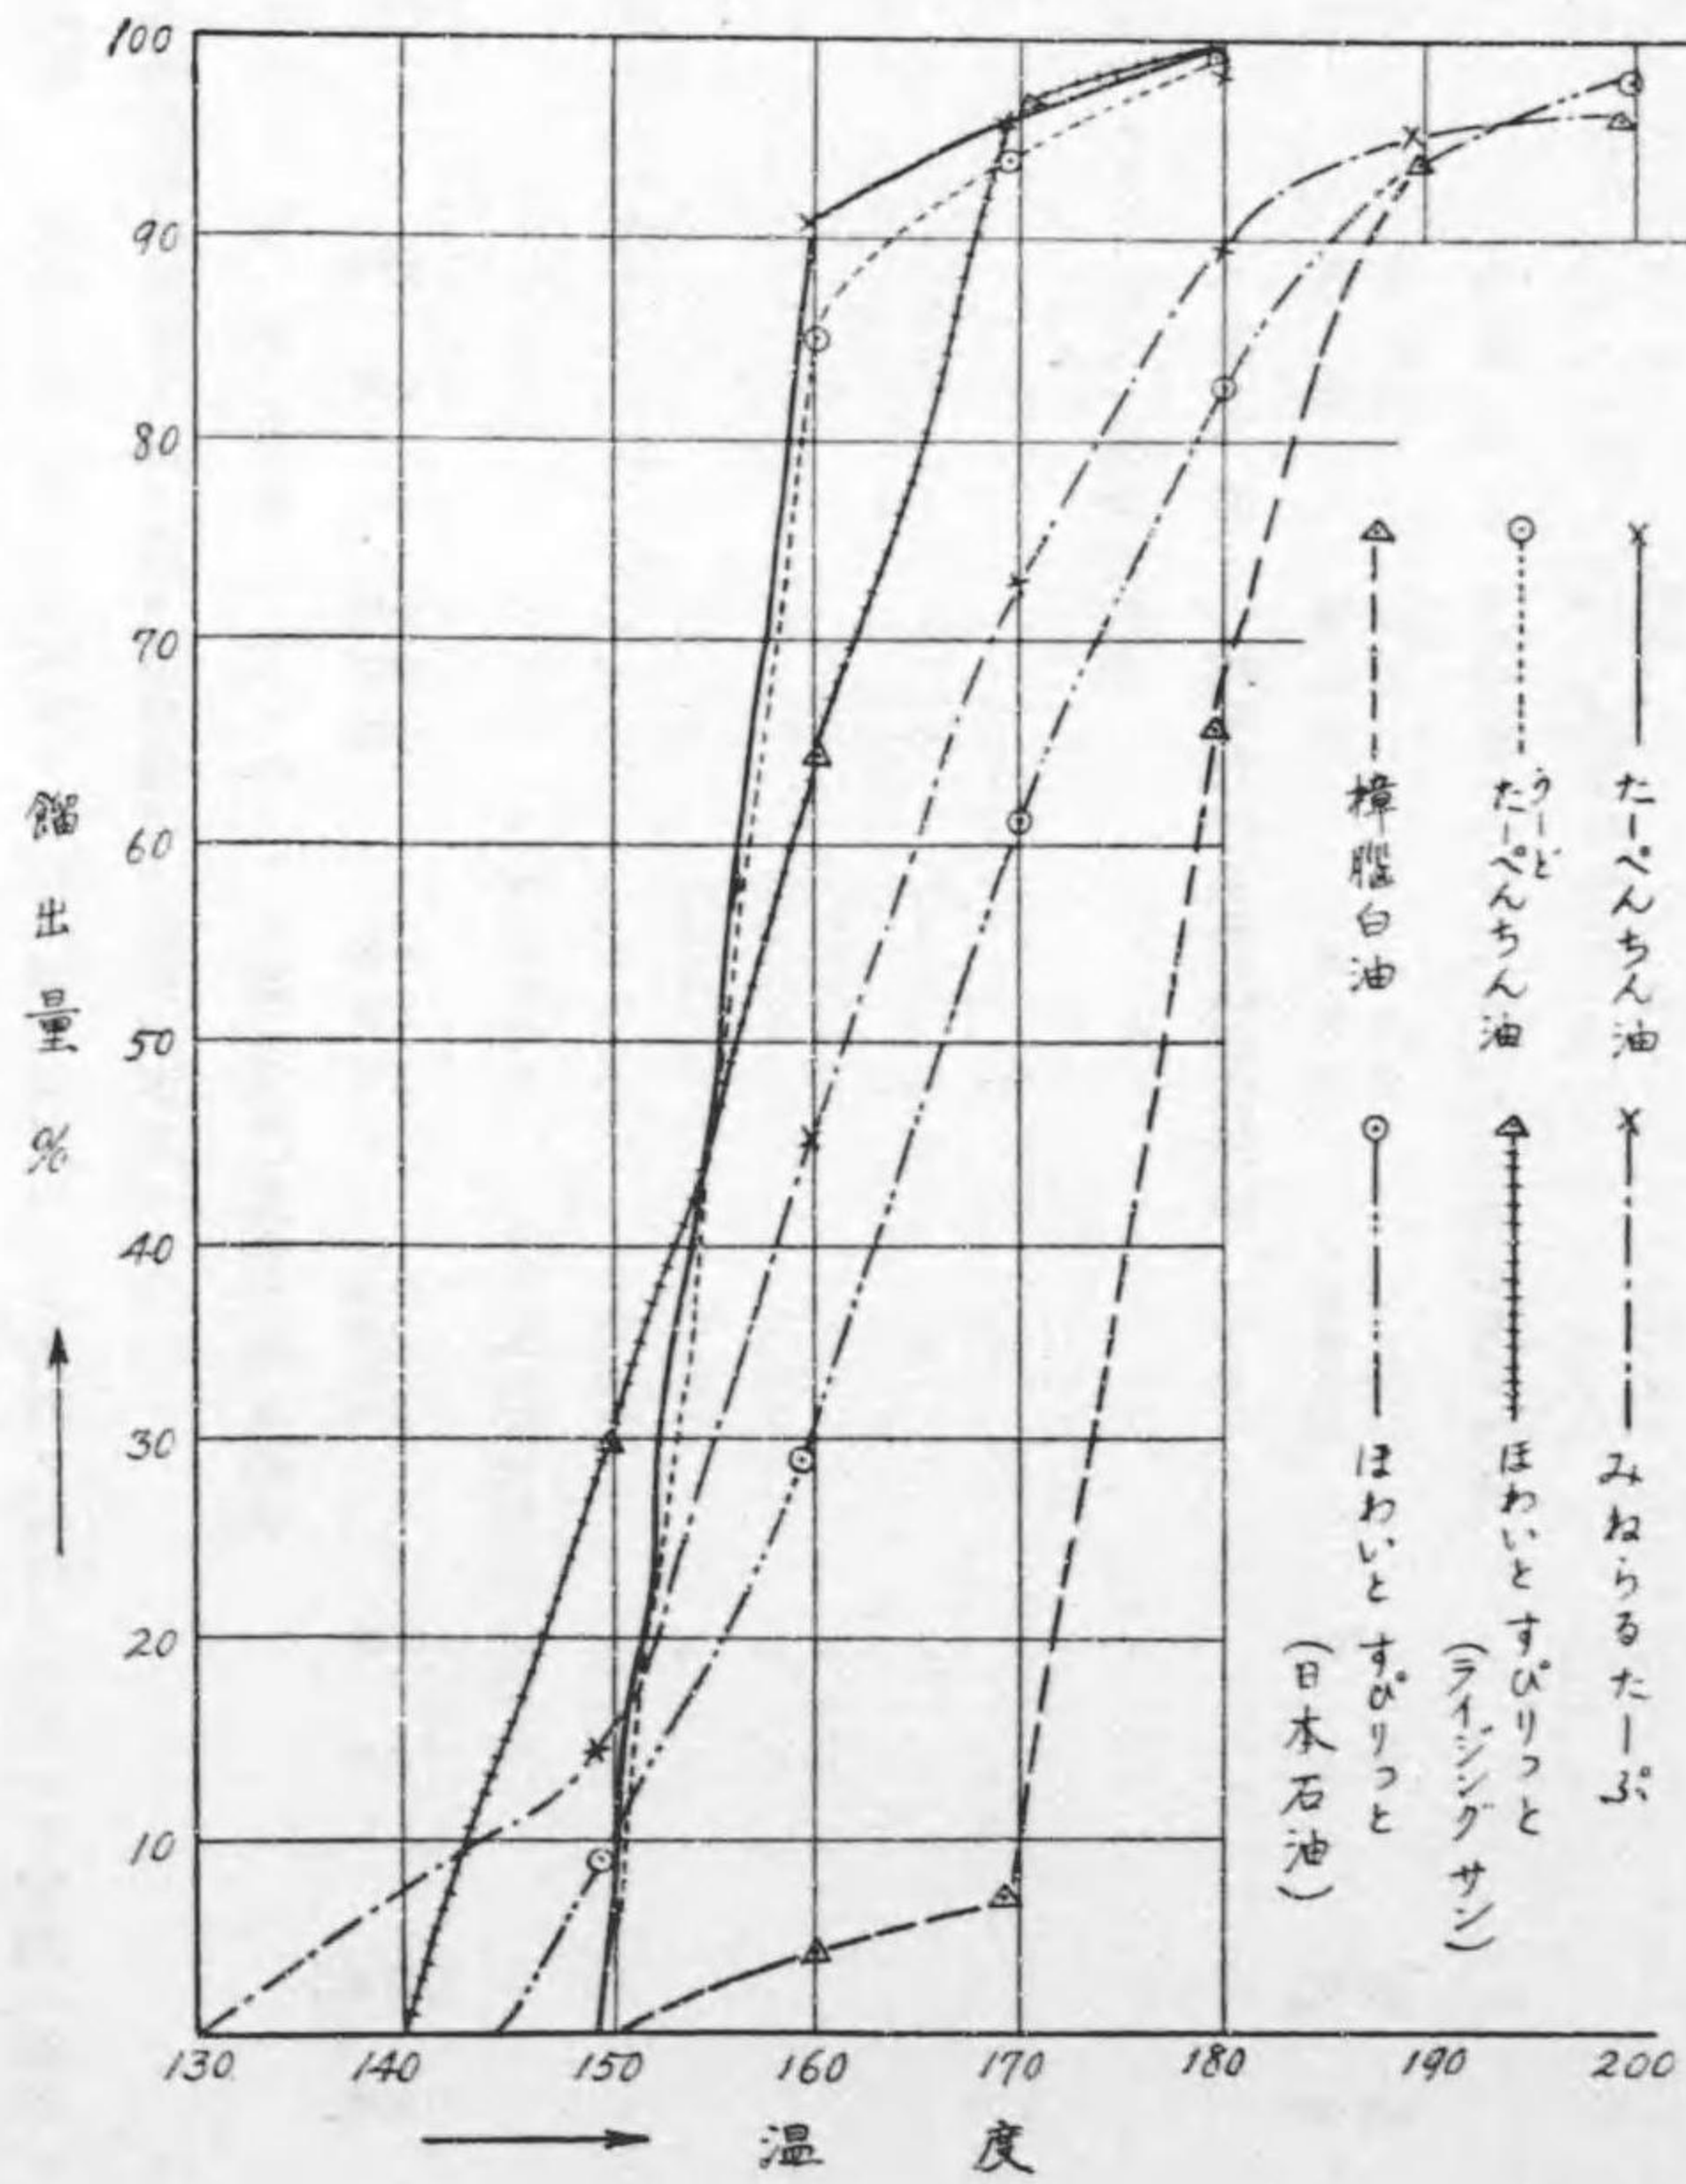 100
90
80
70
60
50
40
30
20
10
餾出量 %
130 140 150 160 170 180 190 200
温度
たーぺんちん油
うーど
たーぺんちん油
樟腦白油
みねらるたーぷ
ほわいと すぴりっと
(ライジング サン)
ほわいと すぴりっと
(日本石油)